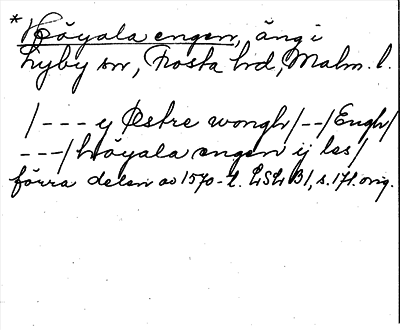 * Höyala engen, äng i
Lyby sn, Frosta hd, Malm. l.
/--- y Østre wongh/--/Engh/
---/ höyala engen ij las/
förra delen av 1570-t. LSLB1, s. 171. orig.